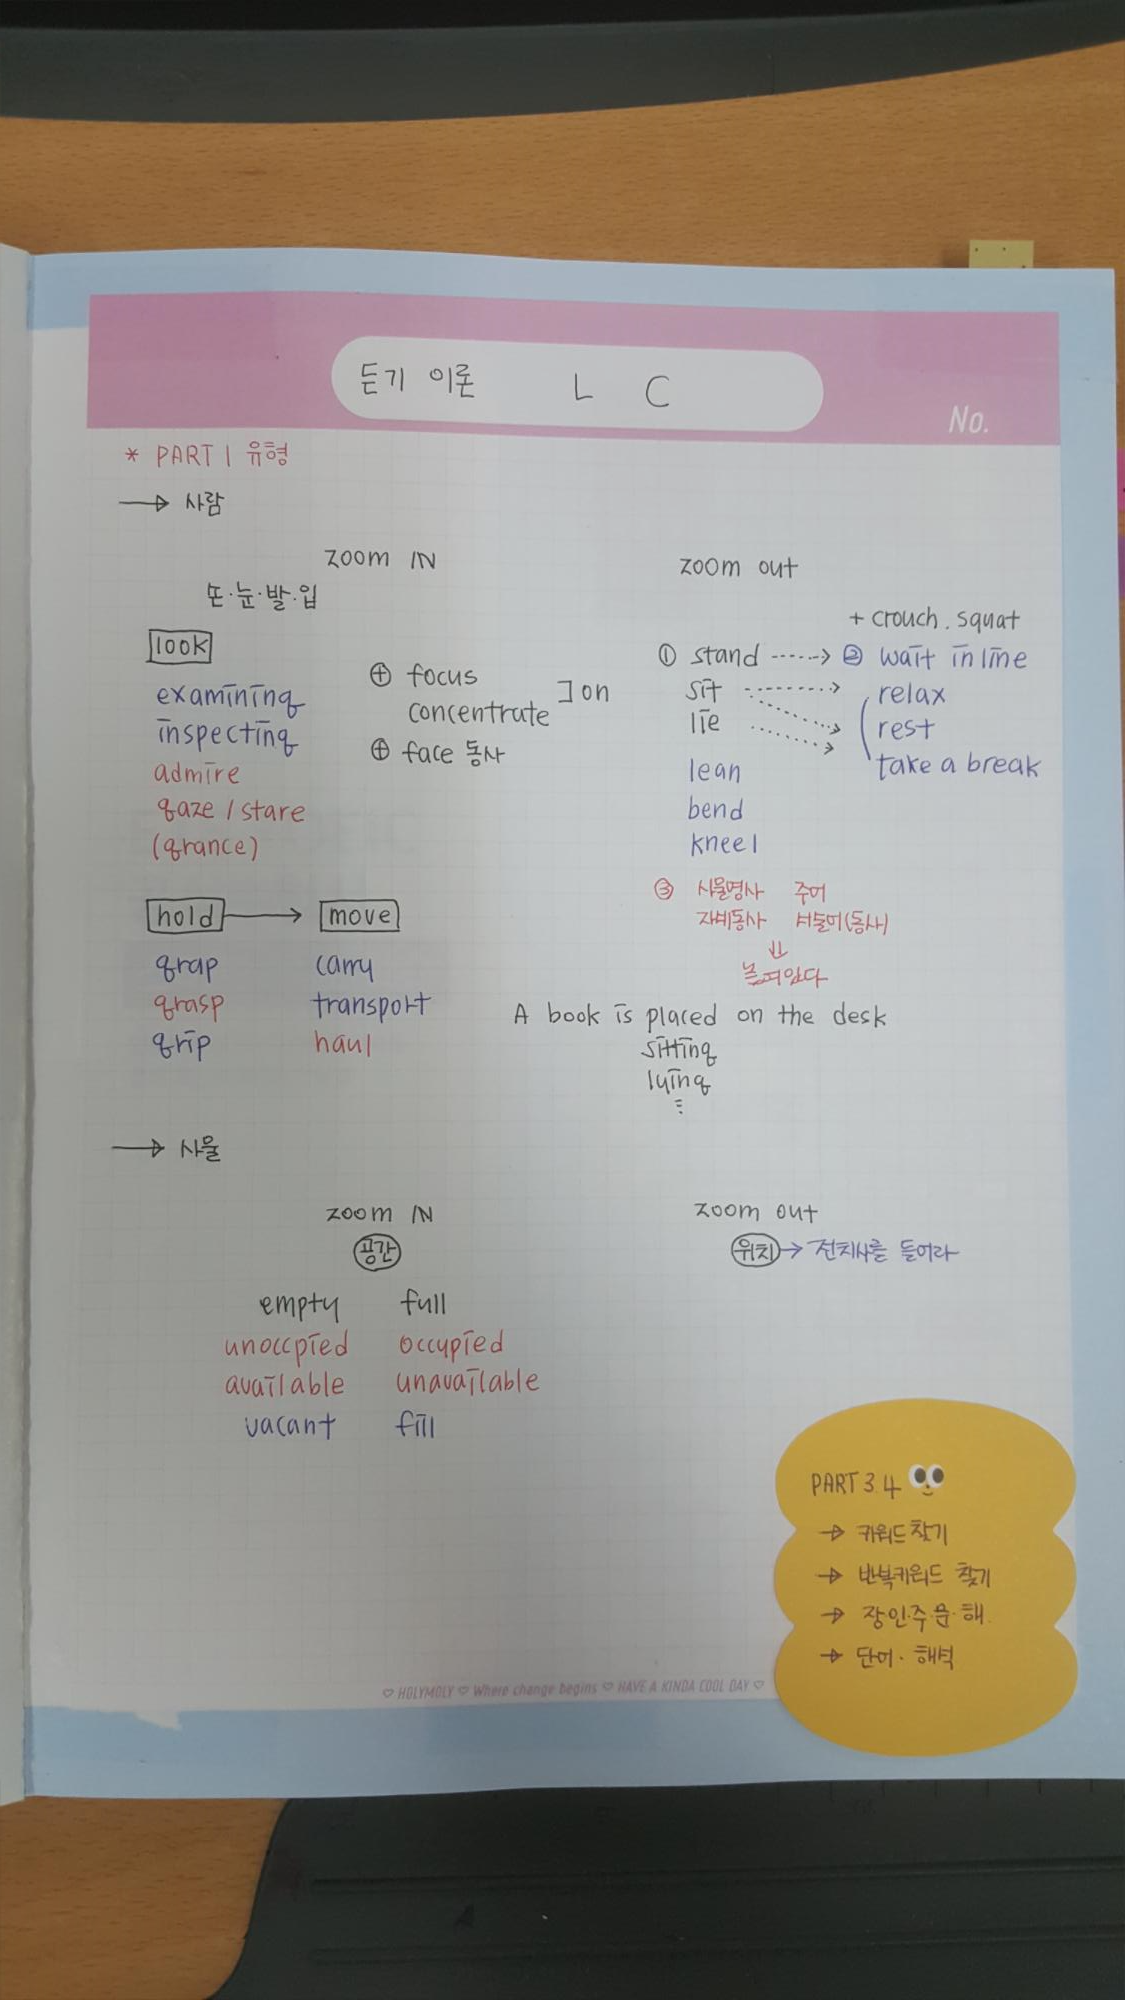 듣기 이론 L C
No.
* PART 1 유형
→ 사람
zoom IN
손·눈·발·입
look
examining
inspecting
admire
gaze / stare
(grance)
⊕ focus
concentrate ] on
⊕ face 동사
hold → move
grap carry
grasp transport
grip haul
zoom out
+ crouch. squat
① stand ----> ② wait in line
sit ----> relax
lie ----> rest
take a break
lean
bend
kneel
③ 사물명사 주어
자세동사 서술어(동사)
⇓
놓여있다
A book is placed on the desk
sitting
lying
⋮
→ 사물
zoom IN
공간
empty full
unoccpied occupied
available unavailable
vacant fill
zoom out
위치 → 전치사를 들어라
PART 3 4
→ 키워드 찾기
→ 반복키워드 찾기
→ 장·인·주·문·해
→ 단어·해석
♡ HOLYMOLY ♡ Where change begins ♡ HAVE A KINDA COOL DAY ♡